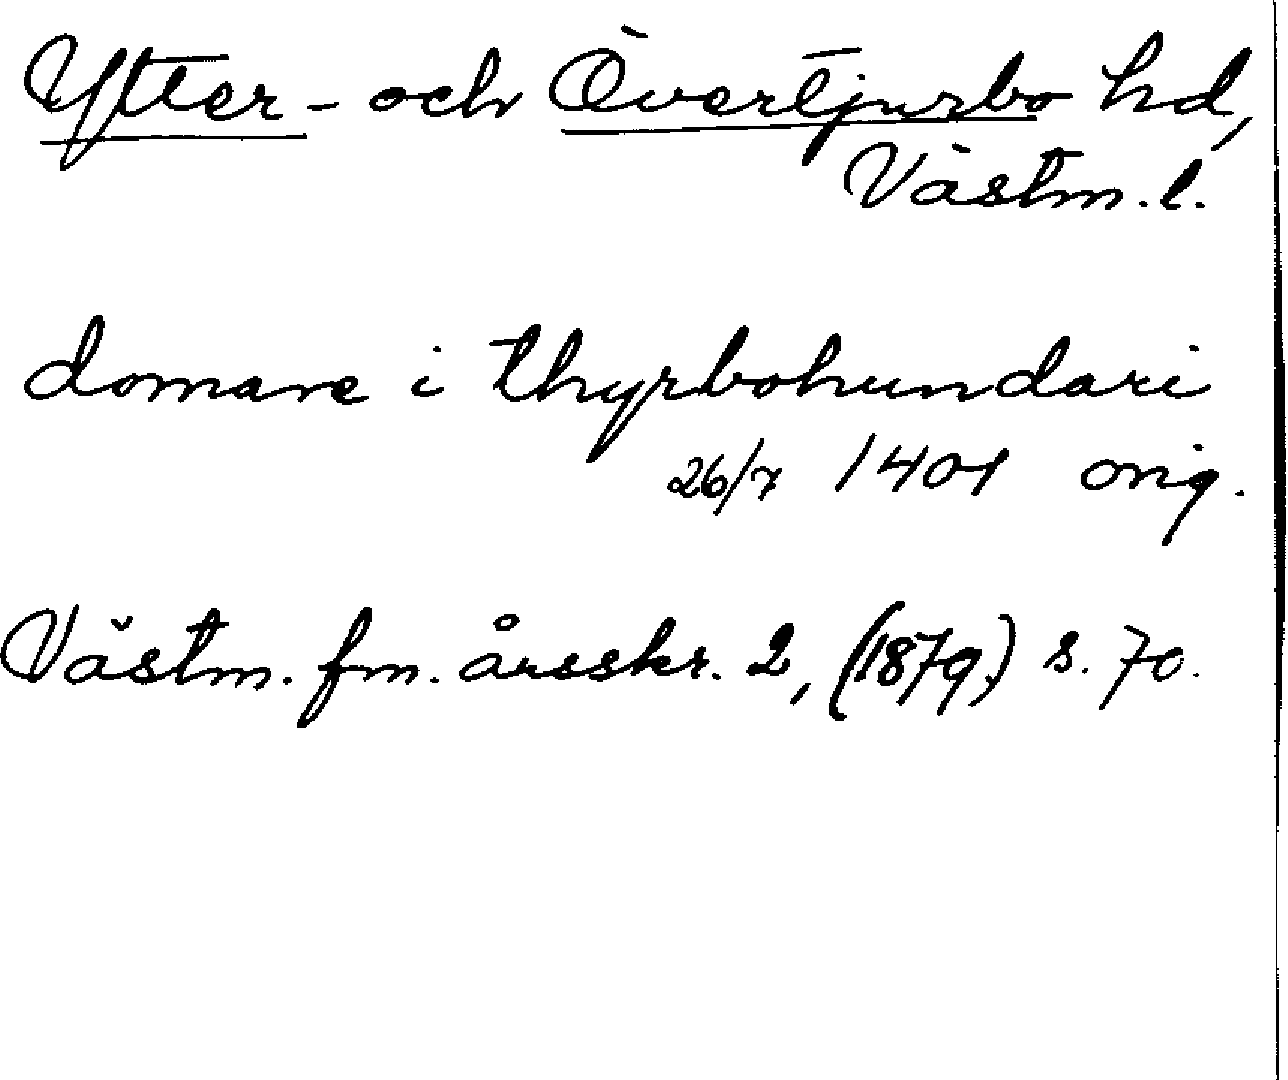 Ytter- och Övertjurbo hd,
Västm. l.
domare i thyrbohundari
26/7 1401 orig.
Västm. fm. årsskr. 2, (1879) s. 70.